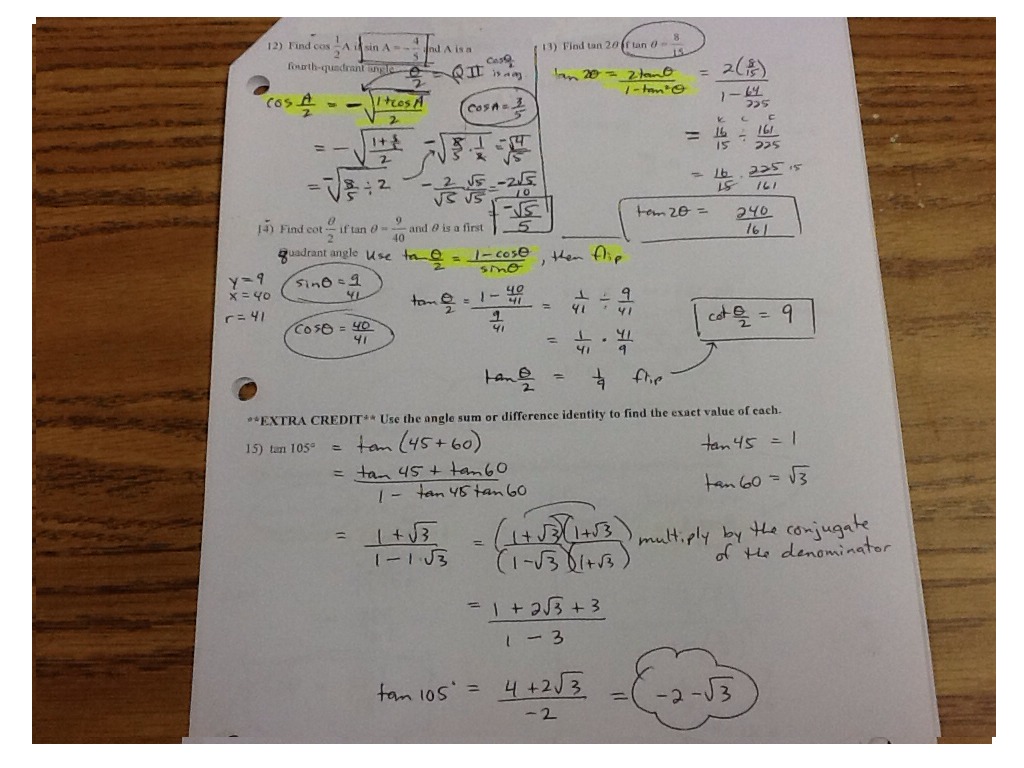 12) Find cos 1/2 A if sin A = -4/5 and A is a
fourth-quadrant angle θ/2 = Q II cos θ/2 is neg
cos A/2 = -√((1+cosA)/2)
cosA = 3/5
= -√((1+3/5)/2) -√(8/5 · 1/2) = -√4/√5
= -√(8/5 ÷ 2) -2/√5 · √5/√5 = -2√5/10
= -√5/5
13) Find tan 2θ if tan θ = 8/15
tan 2θ = 2tanθ/(1-tan²θ) = 2(8/15)/(1 - 64/225)
K C F
= 16/15 ÷ 161/225
= 16/15 · 225/161 15
tan 2θ = 240/161
14) Find cot θ/2 if tan θ = 9/40 and θ is a first
quadrant angle use tan θ/2 = (1-cosθ)/sinθ, then flip
y = 9
x = 40
r = 41
sinθ = 9/41
cosθ = 40/41
tan θ/2 = (1 - 40/41)/(9/41) = 1/41 ÷ 9/41
= 1/41 · 41/9
tan θ/2 = 1/9 flip
cot θ/2 = 9
**EXTRA CREDIT** Use the angle sum or difference identity to find the exact value of each.
15) tan 105° = tan (45 + 60)
tan 45 = 1
= (tan 45 + tan 60)/(1 - tan 45 tan 60)
tan 60 = √3
= (1 + √3)/(1 - 1·√3) = (1+√3)(1+√3)/(1-√3)(1+√3) multiply by the conjugate
of the denominator
= (1 + 2√3 + 3)/(1 - 3)
tan 105° = (4 + 2√3)/-2 = -2 - √3